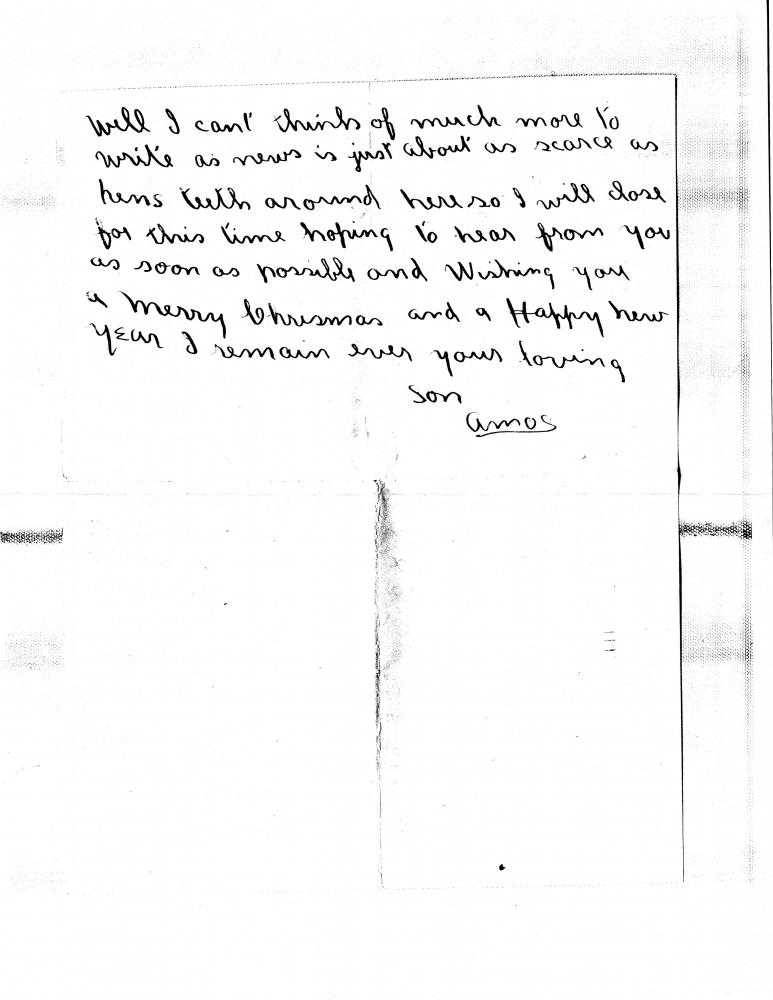 Well I can't think of much more to
write as news is just about as scarce as
hens teeth around here so I will close
for this time hoping to hear from you
as soon as possible and Wishing you
a Merry Chrismas and a Happy New
Year I remain ever your loving
son
Amos